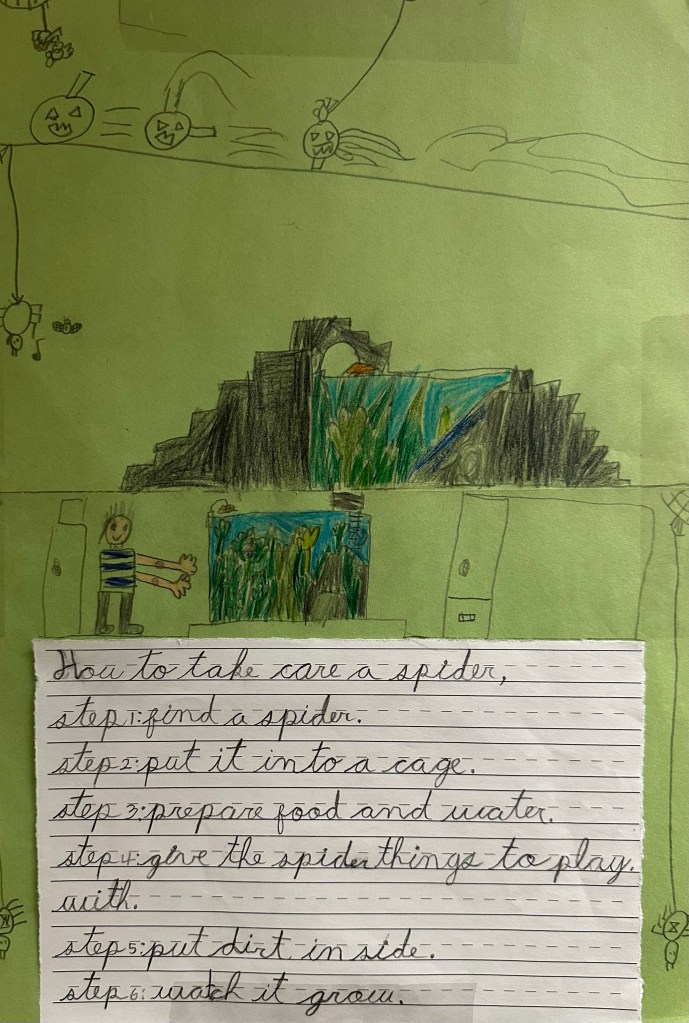 How to take care a spider,
step 1: find a spider.
step 2: put it into a cage.
step 3: prepare food and water.
step 4: give the spider things to play.
with.
step 5: put dirt in side.
step 6: watch it grow.